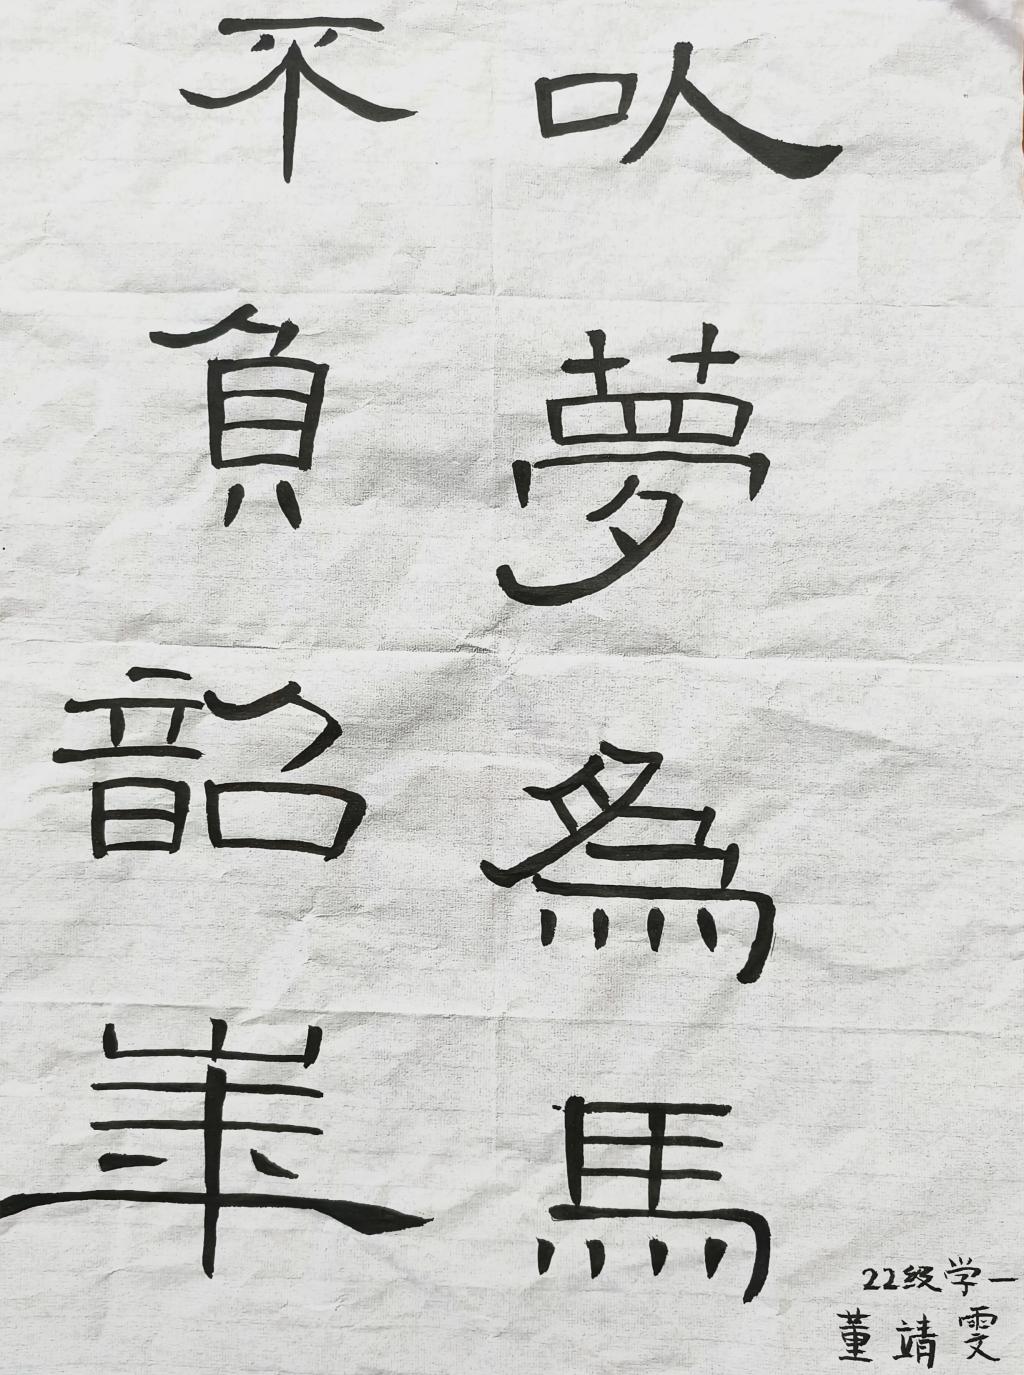 以夢為馬
不負韶華
22级学一
董靖雯